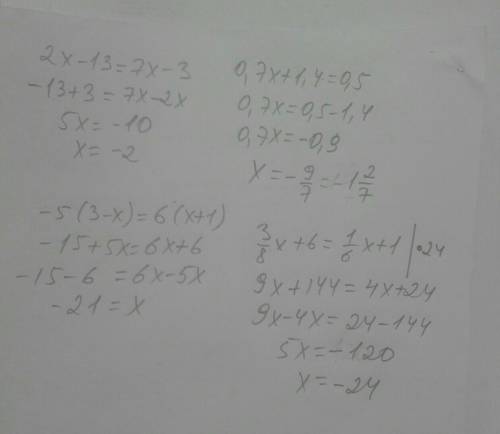 2x-13=7x-3
-13+3=7x-2x
5x=-10
x=-2
0,7x+1,4=0,5
0,7x=0,5-1,4
0,7x=-0,9
x=-9/7=-1 2/7
-5(3-x)=6(x+1)
-15+5x=6x+6
-15-6=6x-5x
-21=x
3/8x+6=1/6x+1|·24
9x+144=4x+24
9x-4x=24-144
5x=-120
x=-24